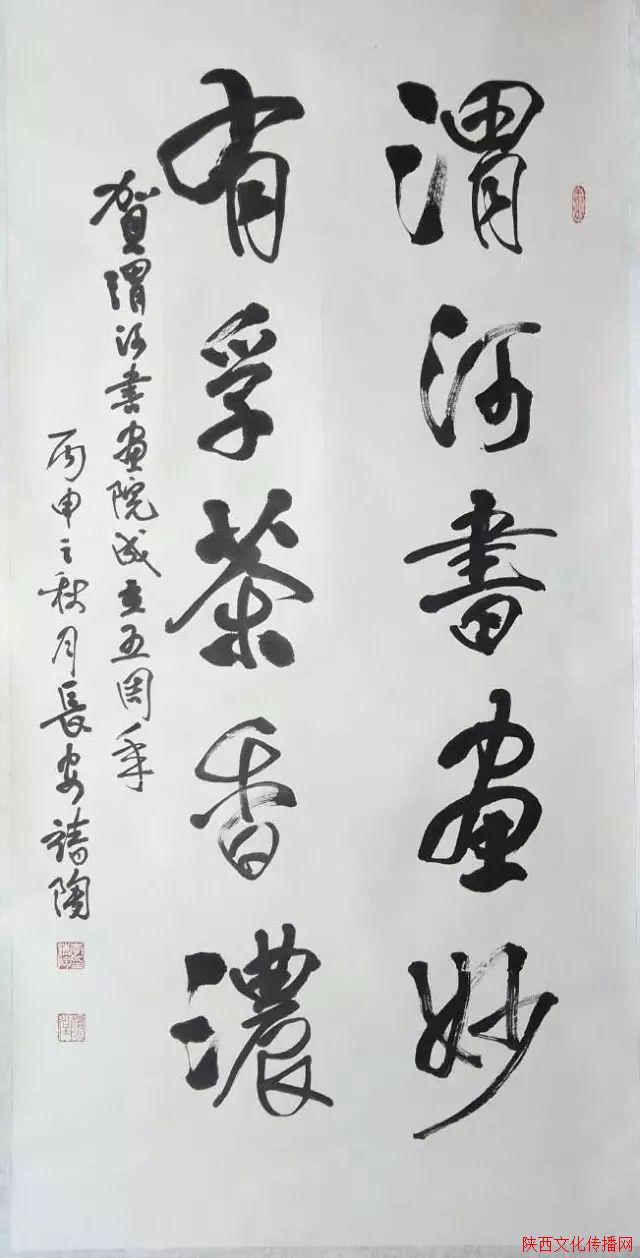 渭河書画妙
有孚茶香濃
賀渭河書画院成立五周年
丙申之秋月長安禱陶
陕西文化传播网